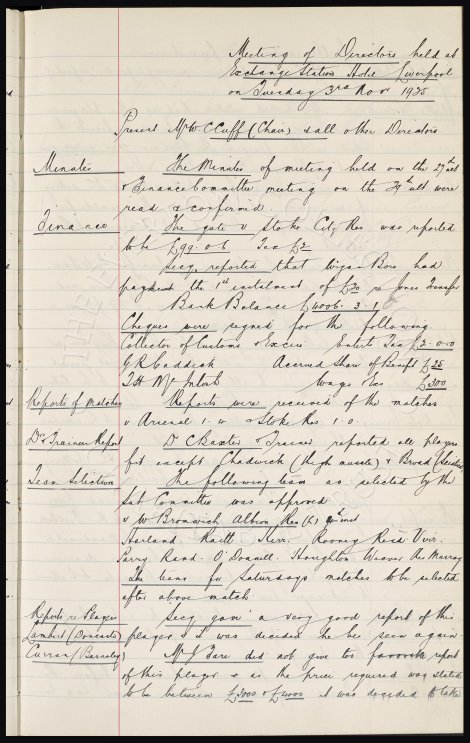 Meeting of Directors held at
Exchange Station Hotel Liverpool
on Tuesday 3rd Nov 1925
Present Mr W C Cuff (Chair) & all other Directors
Minutes The Minutes of meeting held on the 27th ult
& Finance Committee meeting on the ult were
read & confirmed.
Finance The gate v Stoke City Res was reported
to be £99.0.6 Tax £2
Secy reported that Wigan Boro had
the 1st instalment of £ re Jones Transfer
Bank Balance £4006. 3. 1
Cheques were signed for the following
Collector of Customs & Excise Entert Tax £2-0-0
G R Caddick Accrued Share of Benefit £25
T H McIntosh Wages &es £300
Reports of Matches Reports were received of the matches
v Arsenal & Stoke Res 1.0.
Dr & Trainer Report Dr C Baxter & Trainer reported all players
fit except Chadwick (thigh muscle) & Broad
Team Selection The following team as selected by the
Sub Committee was approved
v W Bromwich Albion Res
Harland. Raitt. Kerr. Rooney Reid Virr.
Parry. Rand. O'Donnell. Houghton Weaver Res Murray
The teams for Saturdays matches to be selected
after above match
Reports re Players Secy gave a very good report of this
Lambert (Doncaster) player & it was decided he be seen again
Curran (Barnsley) Mr J Fare did not give too favourite report
of this player & as the price required was stated
to be between £3000 & £4000 it was decided to take